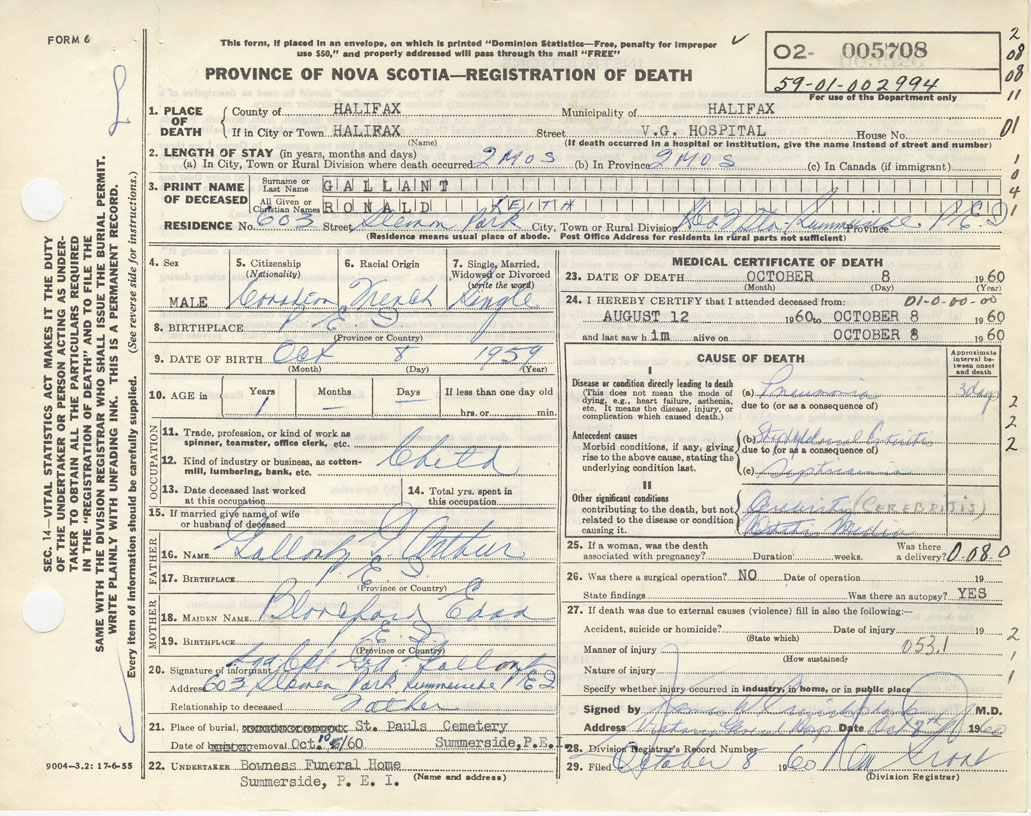 FORM 6
This form, if placed in an envelope, on which is printed "Dominion Statistics—Free, penalty for improper
use $50," and properly addressed will pass through the mail "FREE"
PROVINCE OF NOVA SCOTIA—REGISTRATION OF DEATH
02- 005708
59-01-002994
For use of the Department only
2
08
08
11
01
1. PLACE OF DEATH
County of HALIFAX Municipality of HALIFAX
If in City or Town HALIFAX Street V.G. HOSPITAL House No.
(Name) (If death occurred in a hospital or institution, give the name instead of street and number)
2. LENGTH OF STAY (in years, months and days)
(a) In City, Town or Rural Division where death occurred 2 MOS (b) In Province 2 MOS (c) In Canada (if immigrant)
3. PRINT NAME OF DECEASED
Surname or Last Name GALLANT
All Given or Christian Names RONALD KEITH
RESIDENCE No. 603 Street Slemon Park City, Town or Rural Division Summerside Province P E I
(Residence means usual place of abode. Post Office Address for residents in rural parts not sufficient)
4. Sex MALE
5. Citizenship (Nationality) Canadian
6. Racial Origin French
7. Single, Married, Widowed or Divorced (write the word) Single
8. BIRTHPLACE P E I
(Province or Country)
9. DATE OF BIRTH Oct 8 1959
(Month) (Day) (Year)
10. AGE in Years Months Days If less than one day old
1 — — hrs. or min.
OCCUPATION
11. Trade, profession, or kind of work as
spinner, teamster, office clerk, etc.
12. Kind of industry or business, as cotton-
mill, lumbering, bank, etc.
Child
13. Date deceased last worked
at this occupation
14. Total yrs. spent in
this occupation
15. If married give name of wife
or husband of deceased
FATHER
16. NAME Gallant G Arthur
17. BIRTHPLACE P. E. I.
(Province or Country)
MOTHER
18. MAIDEN NAME Edna
19. BIRTHPLACE P E I
(Province or Country)
20. Signature of informant Gallant
Address 603 Slemon Park Summerside P E I
Relationship to deceased Father
21. Place of burial, St. Pauls Cemetery
Date of removal Oct. 10/60 Summerside, P.E.I.
22. UNDERTAKER Bowness Funeral Home
Summerside, P. E. I. (Name and address)
9004-3.2: 17-6-55
MEDICAL CERTIFICATE OF DEATH
23. DATE OF DEATH OCTOBER 8 1960
(Month) (Day) (Year)
24. I HEREBY CERTIFY that I attended deceased from: 01-0-00-00
AUGUST 12 1960 to OCTOBER 8 1960
and last saw him alive on OCTOBER 8 1960
CAUSE OF DEATH
Approximate interval between onset and death
I
Disease or condition directly leading to death
(This does not mean the mode of
dying, e.g., heart failure, asthenia,
etc. It means the disease, injury, or
complication which caused death.)
(a) Pneumonia 3 days
due to (or as a consequence of)
Antecedent causes
Morbid conditions, if any, giving
rise to the above cause, stating the
underlying condition last.
(b)
due to (or as a consequence of)
(c) Septicaemia
II
Other significant conditions
contributing to the death, but not
related to the disease or condition
causing it.
(CEREBRITIS)
Otitis Media
25. If a woman, was the death
associated with pregnancy? Duration weeks. Was there a delivery? 0-08 0
26. Was there a surgical operation? NO Date of operation 19
State findings Was there an autopsy? YES
27. If death was due to external causes (violence) fill in also the following:—
Accident, suicide or homicide? Date of injury 19
(State which)
Manner of injury 053.1
(How sustained)
Nature of injury
Specify whether injury occurred in industry, in home, or in public place
Signed by M.D.
Address Victoria General Hosp Date Oct 8th 1960
28. Division Registrar's Record Number
29. Filed October 8 1960
(Division Registrar)
SEC. 14—VITAL STATISTICS ACT MAKES IT THE DUTY
OF THE UNDERTAKER OR PERSON ACTING AS UNDER-
TAKER TO OBTAIN ALL THE PARTICULARS REQUIRED
IN THE "REGISTRATION OF DEATH" AND TO FILE THE
SAME WITH THE DIVISION REGISTRAR WHO SHALL ISSUE THE BURIAL PERMIT.
WRITE PLAINLY WITH UNFADING INK. THIS IS A PERMANENT RECORD.
Every item of information should be carefully supplied. (See reverse side for instructions.)